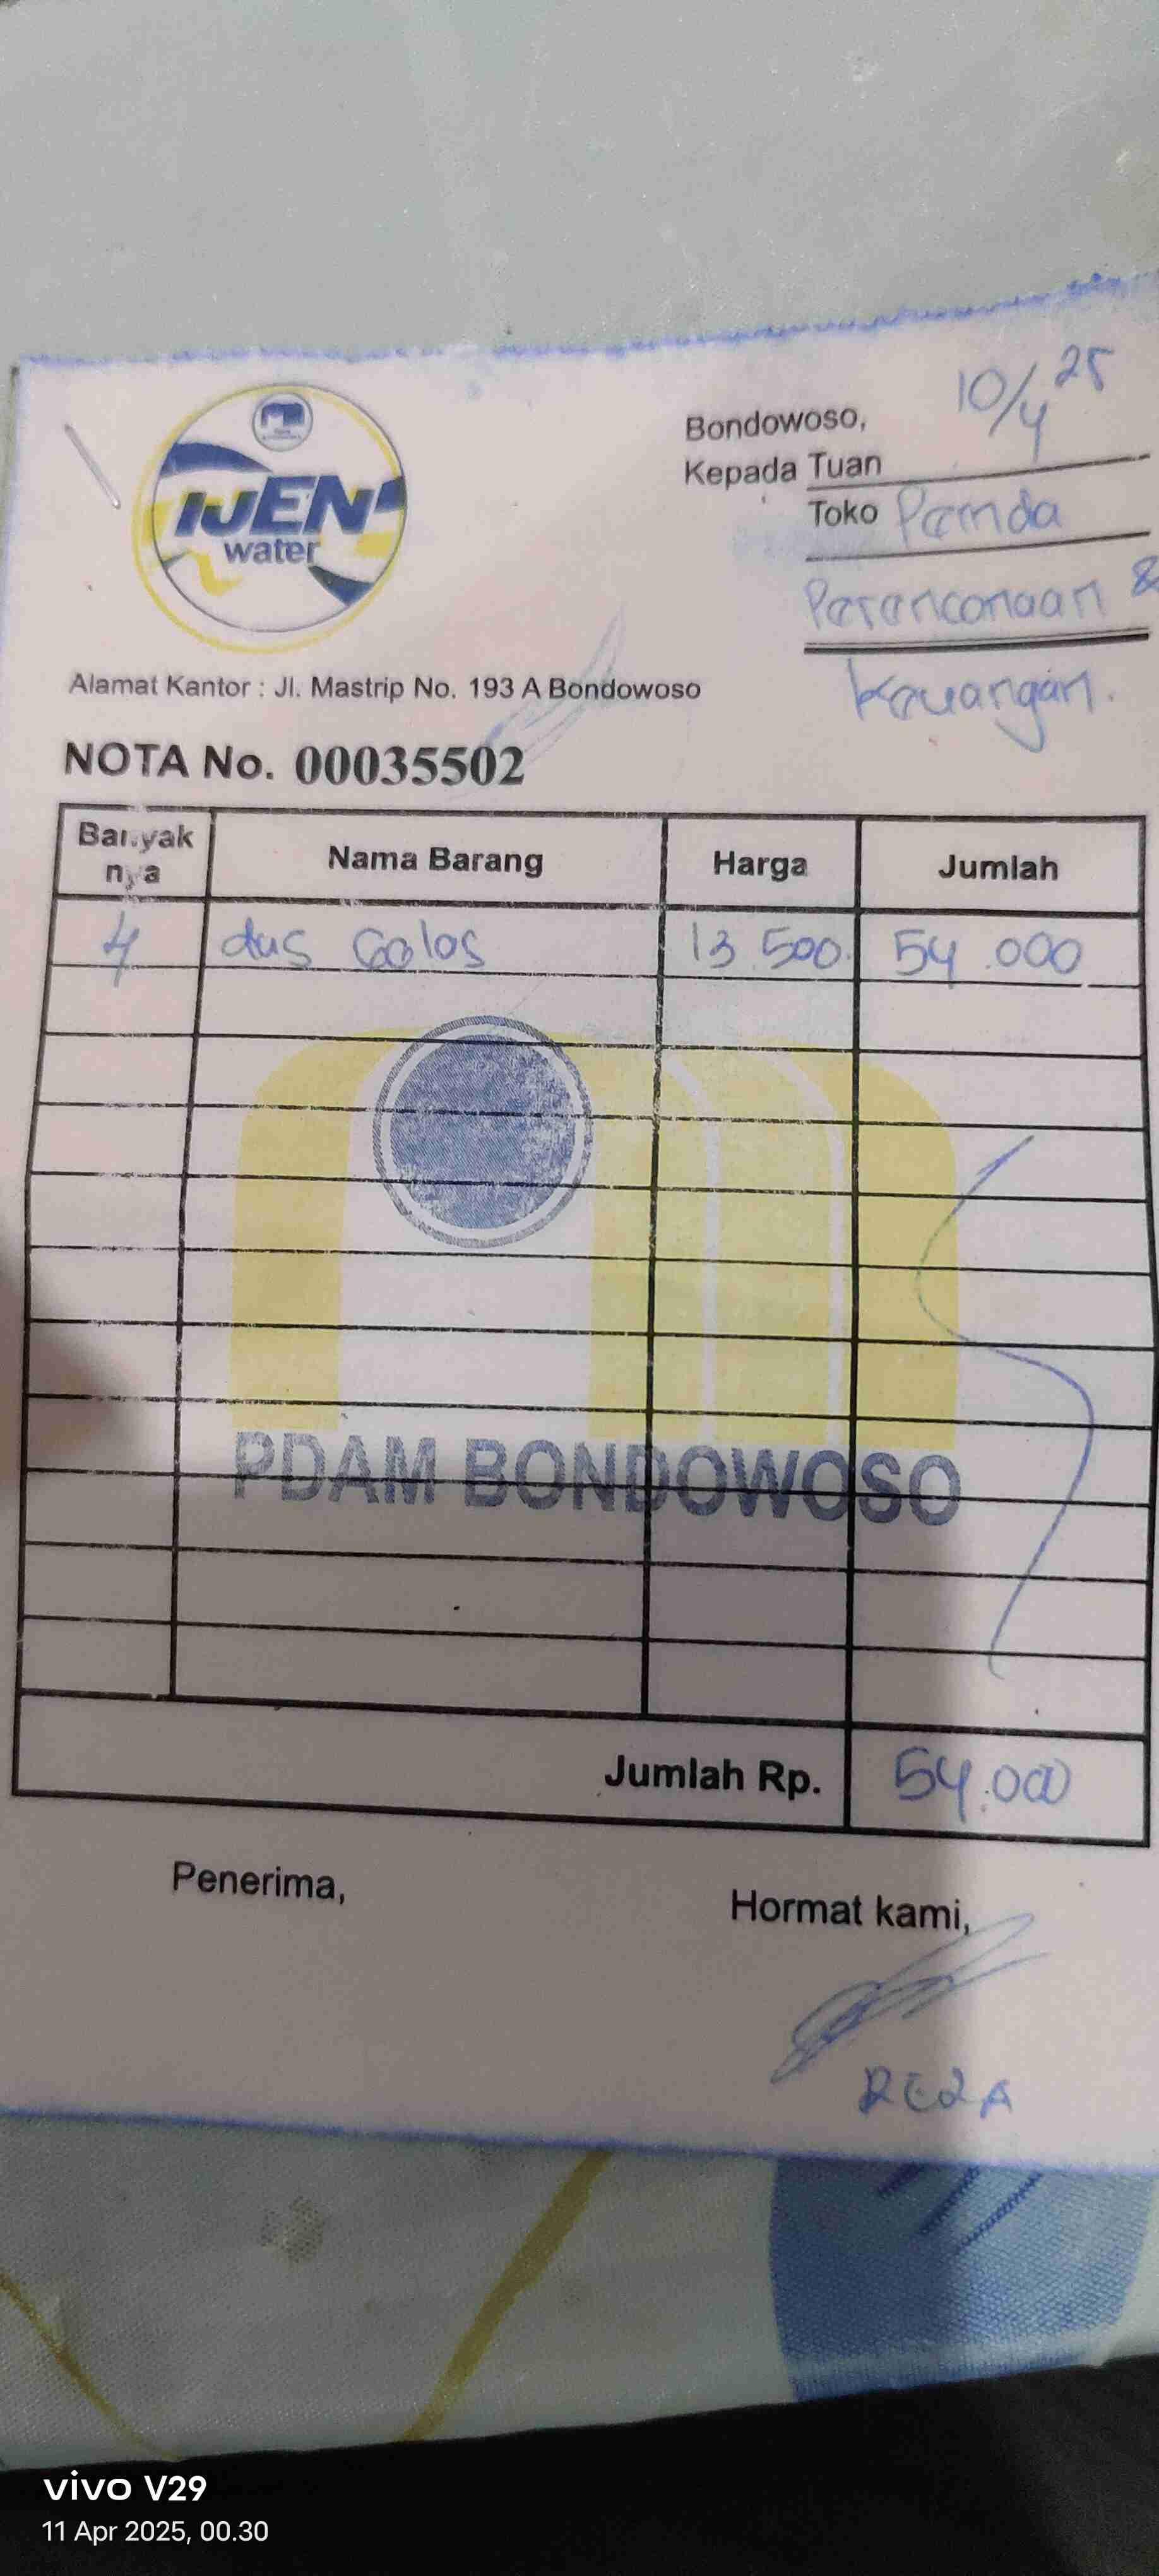 IJEN
water
Bondowoso, 10/4 25
Kepada Tuan
Toko Pemda
Perencanaan &
Keuangan.
Alamat Kantor : Jl. Mastrip No. 193 A Bondowoso
NOTA No. 00035502
Banyak nya Nama Barang Harga Jumlah
4 dus Gelas 13.500. 54.000
PDAM BONDOWOSO
Jumlah Rp. 54.000
Penerima, Hormat kami,
REZA
vivo V29
11 Apr 2025, 00.30